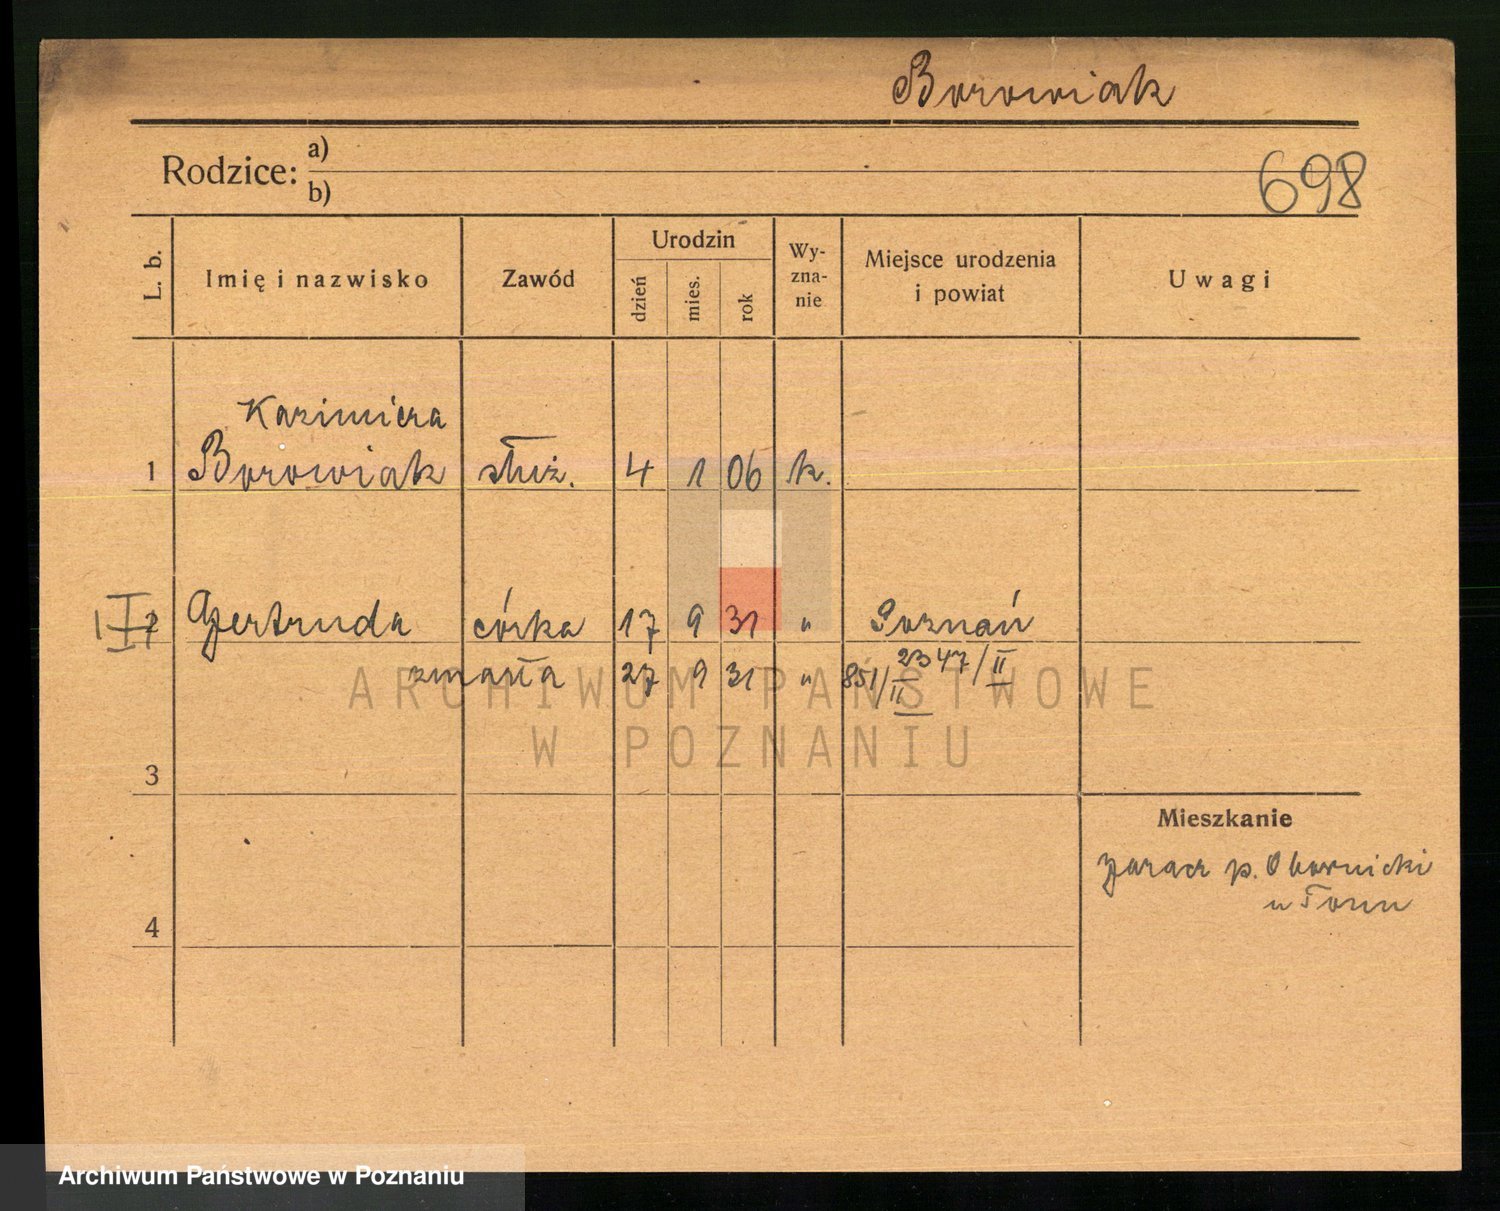 Borowiak
Rodzice: a)
b)
698
L. b.
Imię i nazwisko
Zawód
Urodzin
dzień
mies.
rok
Wy-
zna-
nie
Miejsce urodzenia
i powiat
Uwagi
Kazimiera
1 Borowiak służ. 4 1 06 k.
Gertruda córka 17 9 31 " Poznań
zmarła 27 9 31 " 851/II 2347/II
3
4
Mieszkanie
p. Obornicki
ARCHIWUM PAŃSTWOWE
W POZNANIU
Archiwum Państwowe w Poznaniu